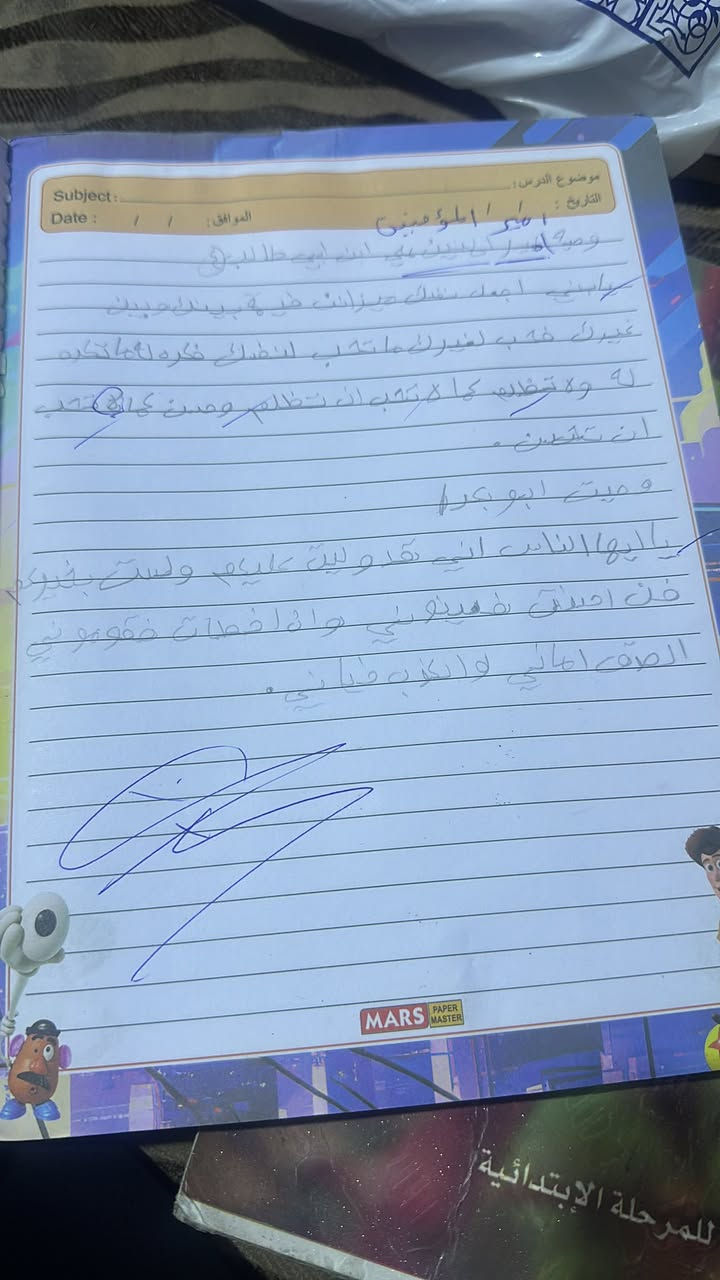 موضوع الدرس:
Subject:
التاريخ: / /
Date: / / الموافق:
امير المؤمنين
وصية امير المؤمنين علي ابن ابي طالب
يابني اجعل نفسك ميزانك فيه بينك وبين
غيرك فحب لغيرك ما تحب لنفسك فكره له ما تكره
له ولا تظلم كما لا تحب ان تظلم وحسن كما لا تحب
ان تحسن .
وصيت ابو بكر
يا ايها الناس اني قد وليت عليكم ولست بخيركم
فن احسنت فعينوني وان اخطات فقوموني
الصدق اماني والكذب خياني .
MARS PAPER MASTER
للمرحلة الإبتدائية